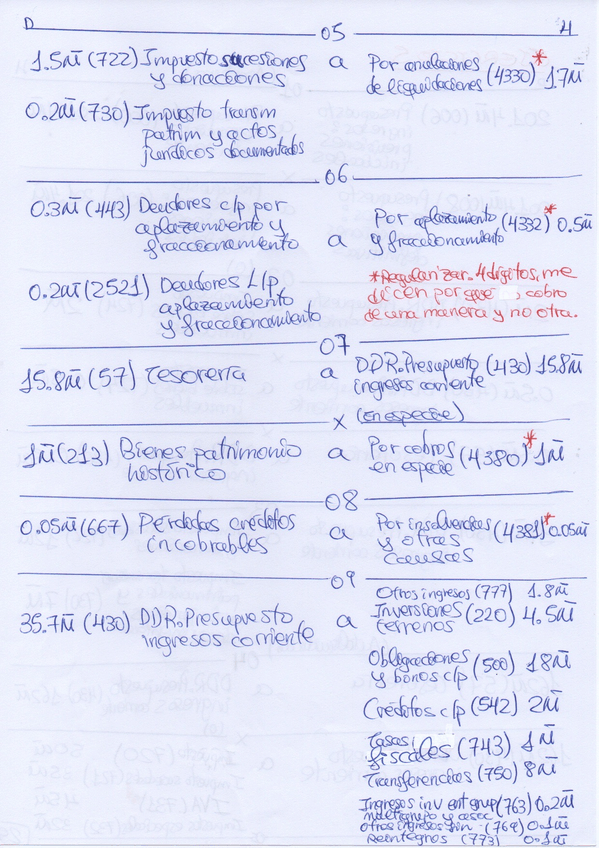 D 05 H
1.5M (722) Impuesto sucesiones a Por anulaciones (4330)* 1.7M
y donaciones de liquidaciones
0.2M (730) Impuesto transm
patrim y actos
jurídicos documentados
06
0.3M (443) Deudores c/p por Por aplazamiento (4332)* 0.5M
aplazamiento y a y fraccionamiento
fraccionamiento
0.2M (2521) Deudores L/p, *Regularizar. 4 dígitos, me
aplazamiento dicen por qué cobro
y fraccionamiento de una manera y no otra.
07
15.8M (57) Tesorería a DDR. Presupuesto (430) 15.8M
ingresos corriente
x (en especie)
1M (213) Bienes patrimonio a Por cobros (4380)* 1M
histórico en especie
08
0.05M (667) Pérdidas créditos a Por insolvencias (4381)* 0.05M
incobrables y otras
causas
09
Otros ingresos (777) 1.8M
35.7M (430) DDR. Presupuesto a Inversiones (220) 4.5M
ingresos corriente terrenos
Obligaciones (500) 18M
y bonos c/p
Créditos c/p (542) 2M
Tasas
fiscales (743) 1M
Transferencias (750) 8M
Ingresos inv ent grup (763) 0.2M
multigrupo y asoc
Otros ingresos fin. (769) 0.1M
Reintegros (773) 0.1M